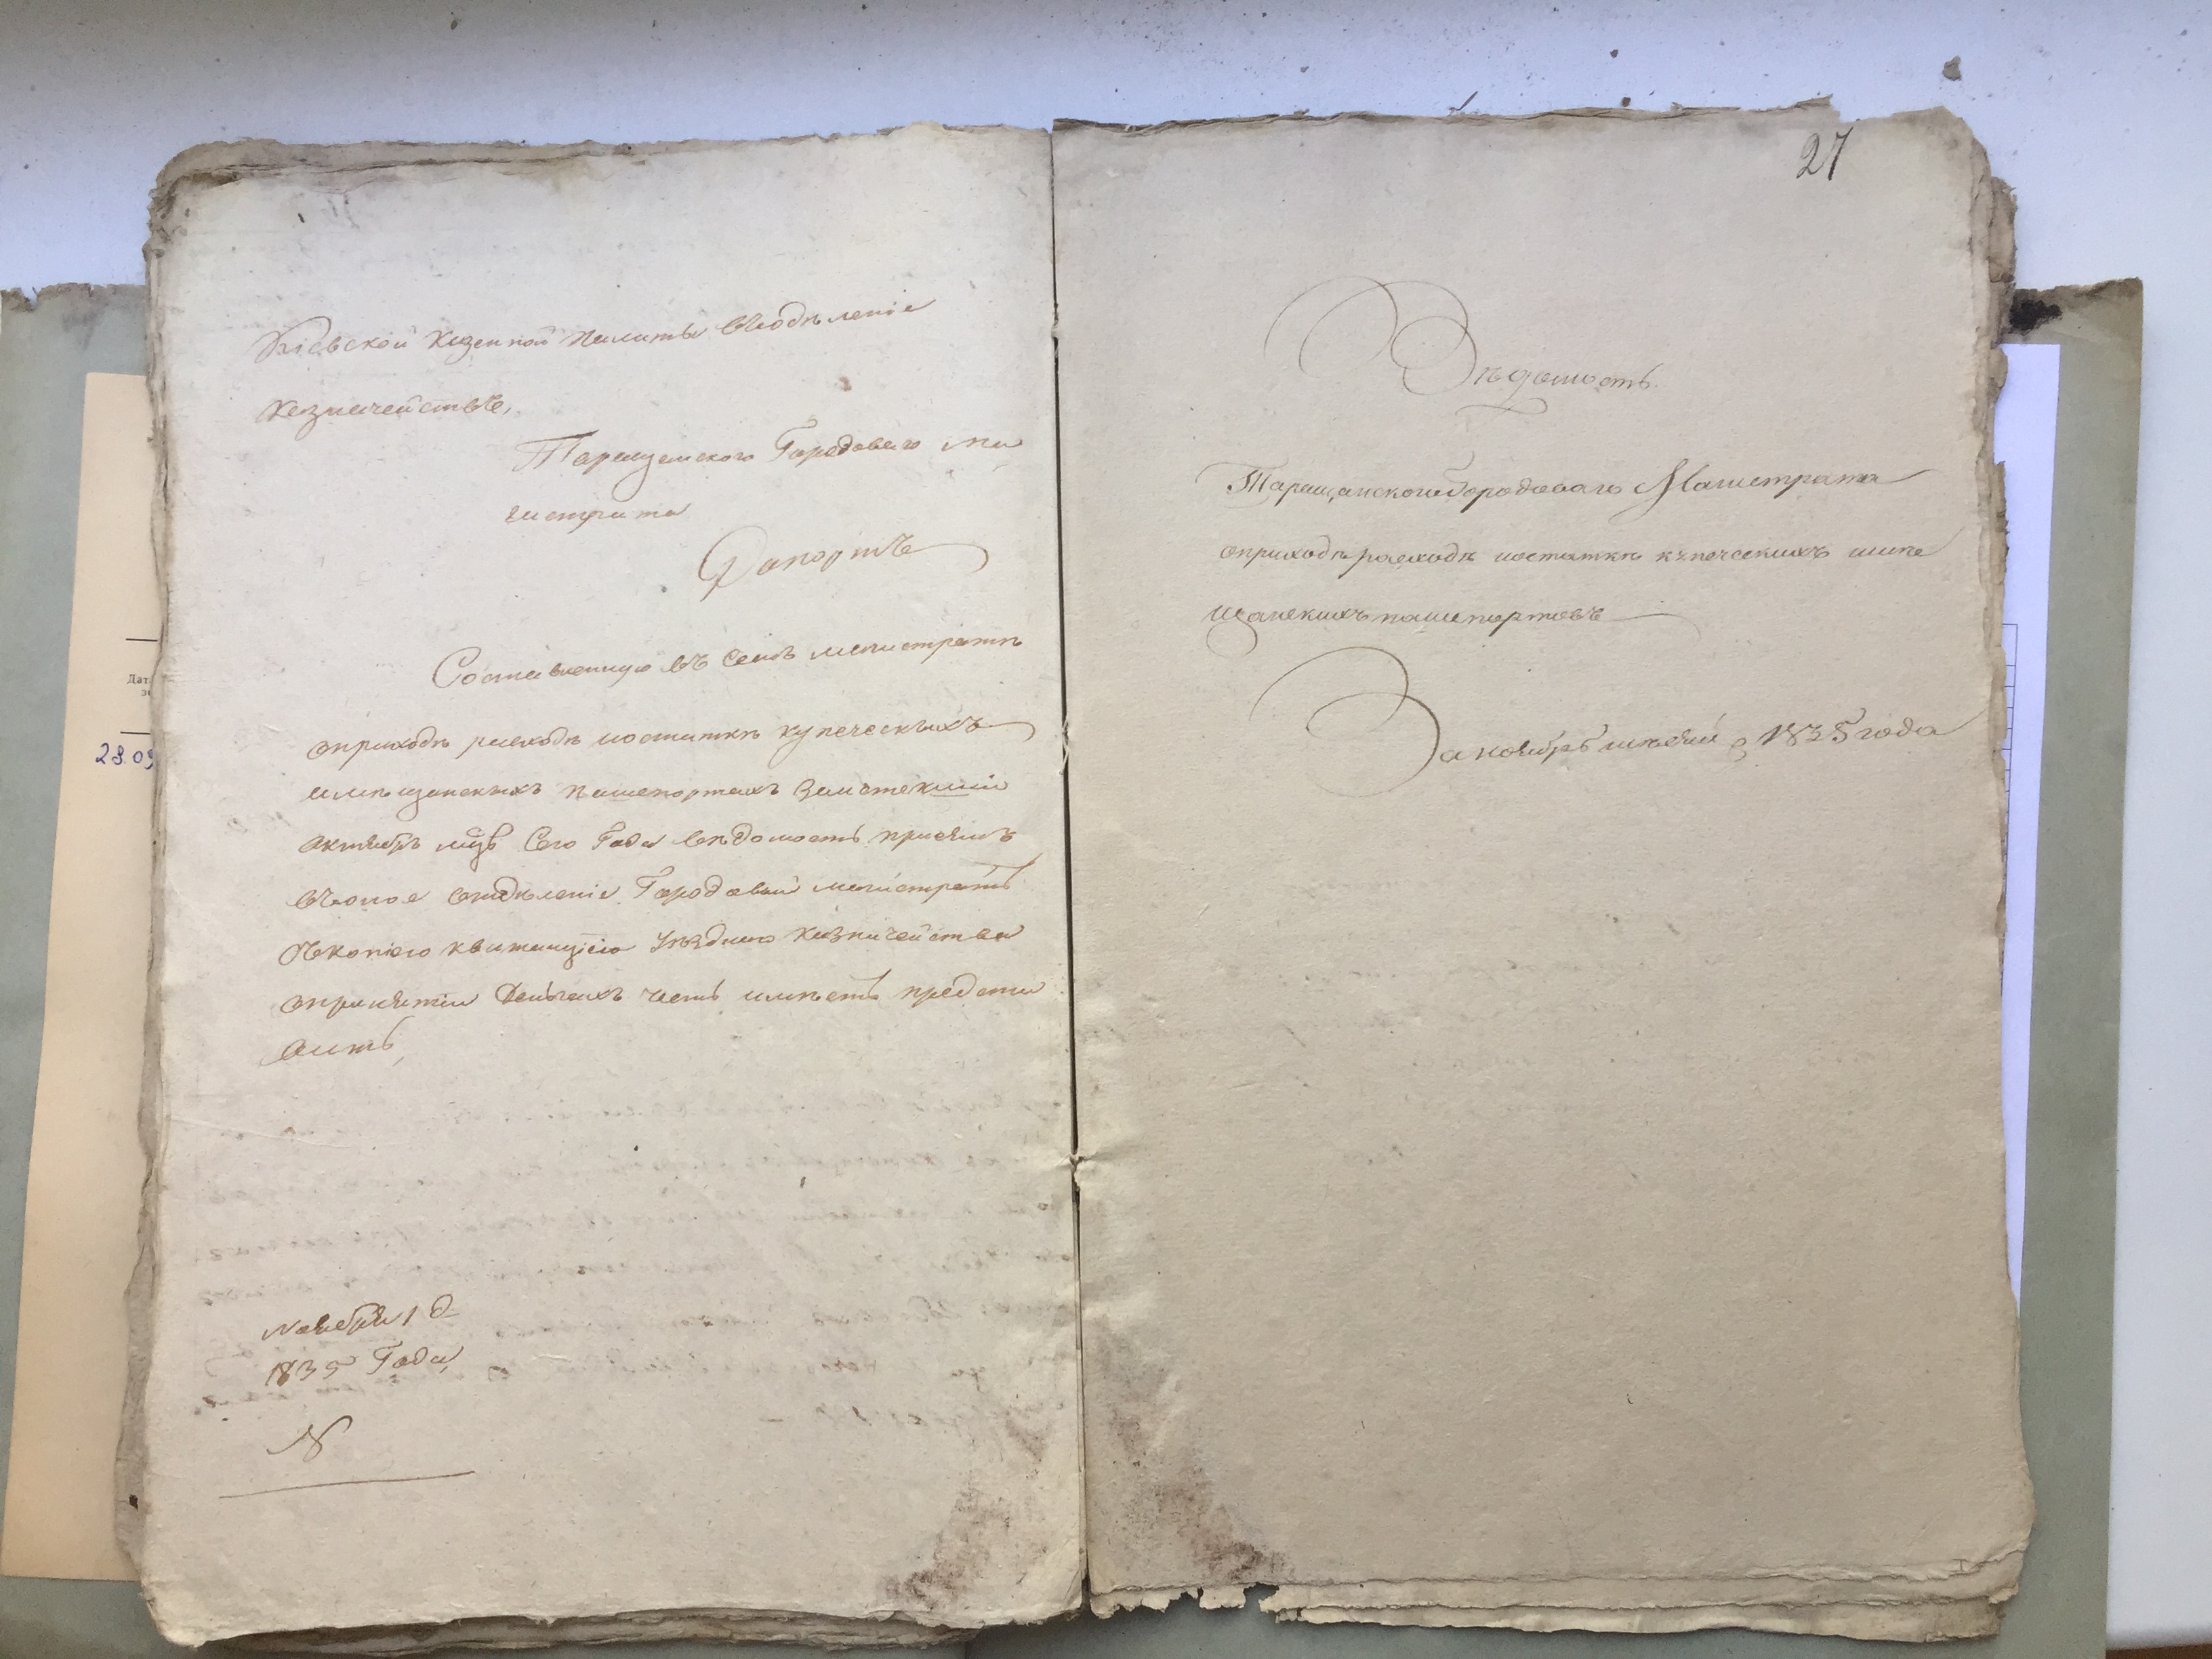 Кіевской Казенной Палаты въ Отдѣленіе
Казначейства,
Таращанского Городоваго Ма
гистрата
Рапортъ
Составленную въ семъ магистратѣ
оприходѣ расходѣ иостаткѣ купеческыхъ
имѣщанскихъ пашепортахъ заистекшій
октябрь мцъ Сего Года вѣдомость присемъ
въоное отдѣленіе Городовый магистратъ
съкопіею квитанціею Уѣздного Казначейства
опринятіи Деньгахъ честь имѣетъ предста
вить,
Ноября 1 д
1835 Года,
N
27
Вѣдомость
Таращанского Городоваго Магистрата
оприходѣ расходѣ иостаткѣ купеческихъ имѣ
щанскихъ пашепортовъ
За ноябрь мѣсяцъ 1835 года
Дат
28.09